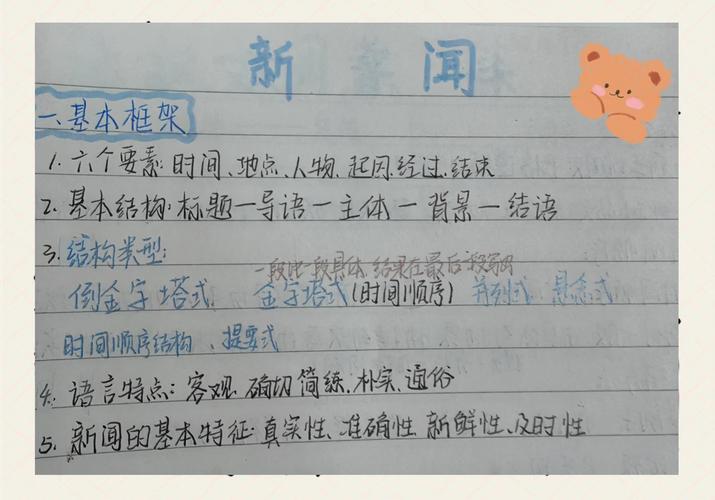 新闻
一、基本框架
1. 六个要素: 时间、地点、人物、起因、经过、结束
2. 基本结构: 标题—导语—主体—背景—结语
3. 结构类型:
一段比一段具体,结果在最后一段写出
倒金字塔式 金字塔式(时间顺序) 并列式 悬念式
时间顺序结构、提要式
4. 语言特点: 客观、确切、简练、朴实、通俗
5. 新闻的基本特征: 真实性、准确性、新鲜性、及时性